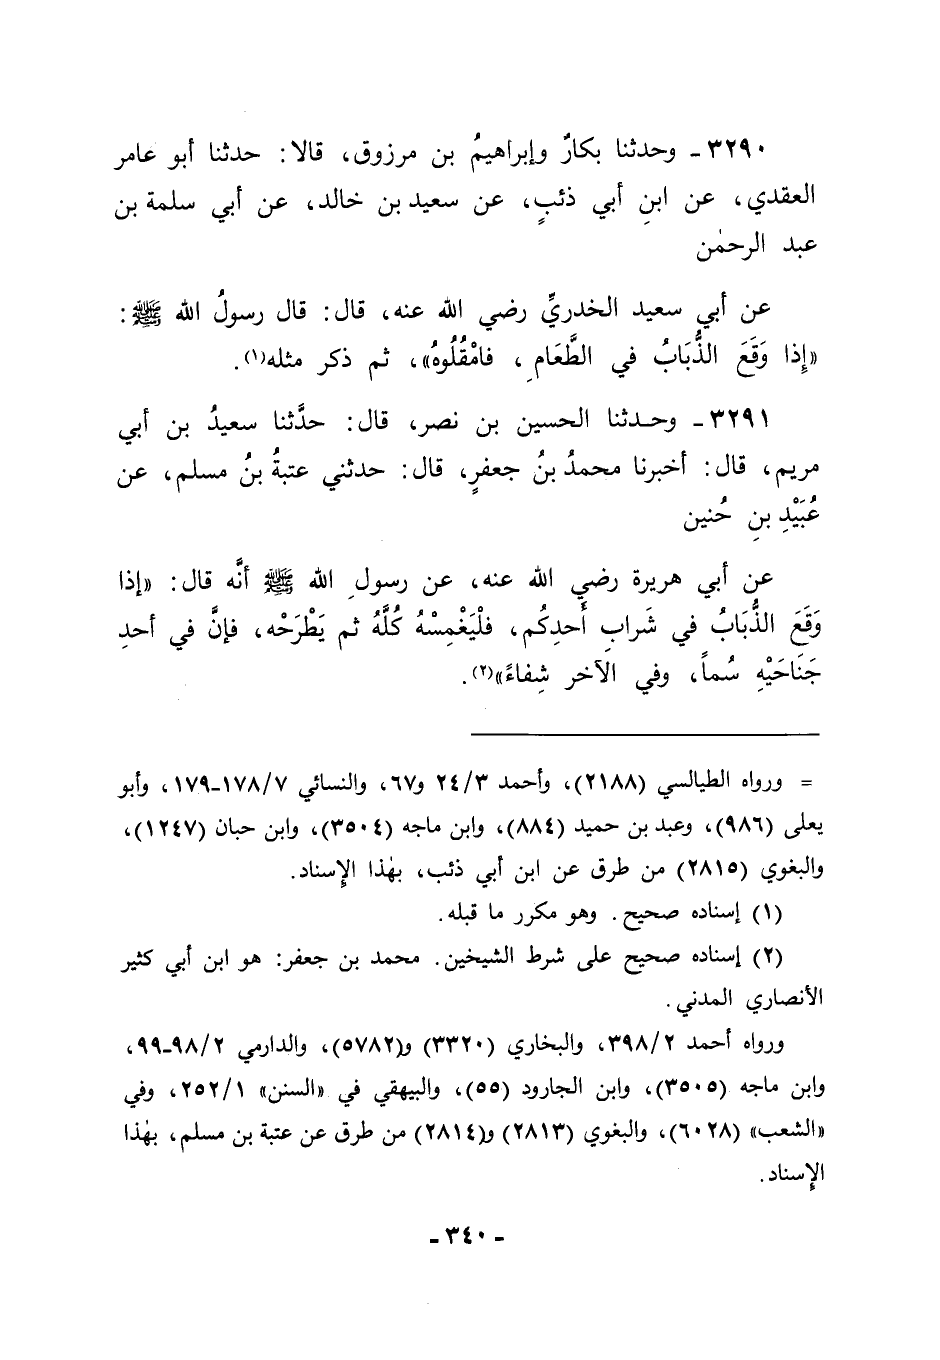 ٣٢٩٠ـ وحدثنا بكارٌ وإبراهيمُ بن مرزوق، قالا: حدثنا أبو عامر
العقدي، عن ابنِ أبي ذئبٍ، عن سعيد بن خالد، عن أبي سلمة بن
عبد الرحمٰن
عن أبي سعيد الخدريِّ رضي الله عنه، قال: قال رسولُ الله ﷺ:
«إِذا وَقَعَ الذُّبَابُ في الطَّعَامِ، فامْقُلُوهُ»، ثم ذكر مثله(١).
٣٢٩١ـ وحـدثنا الحسين بن نصر، قال: حدَّثنا سعيدُ بن أبي
مريم، قال: أخبرنا محمدُ بنُ جعفرٍ، قال: حدثني عتبةُ بنُ مسلم، عن
عُبَيْدِ بنِ حُنين
عن أبي هريرة رضي الله عنه، عن رسولِ الله ﷺ أنَّه قال: «إذا
وَقَعَ الذُّبَابُ في شَرابِ أَحدِكُم، فلْيَغْمِسْهُ كُلَّهُ ثم يَطْرَحْه، فإنَّ في أحدِ
جَنَاحَيْهِ سُماً، وفي الآخر شِفاءً»(٢).
= ورواه الطيالسي (٢١٨٨)، وأحمد ٢٤/٣ و٦٧، والنسائي ١٧٨/٧ـ١٧٩، وأبو
يعلى (٩٨٦)، وعبد بن حميد (٨٨٤)، وابن ماجه (٣٥٠٤)، وابن حبان (١٢٤٧)،
والبغوي (٢٨١٥) من طرق عن ابن أبي ذئب، بهٰذا الإِسناد.
(١) إسناده صحيح. وهو مكرر ما قبله.
(٢) إسناده صحيح على شرط الشيخين. محمد بن جعفر: هو ابن أبي كثير
الأنصاري المدني.
ورواه أحمد ٣٩٨/٢، والبخاري (٣٣٢٠) و(٥٧٨٢)، والدارمي ٩٨/٢ـ٩٩،
وابن ماجه (٣٥٠٥)، وابن الجارود (٥٥)، والبيهقي في «السنن» ٢٥٢/١، وفي
«الشعب» (٦٠٢٨)، والبغوي (٢٨١٣) و(٢٨١٤) من طرق عن عتبة بن مسلم، بهٰذا
الإِسناد.
ـ ٣٤٠ ـ